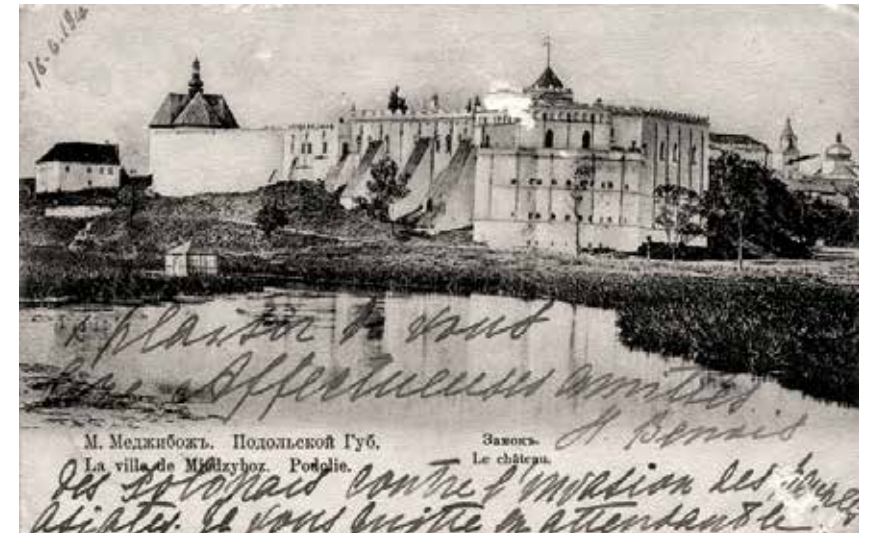 plaisir de vous
lire. Affectueuses amitiés
Benois
М. Меджибожъ. Подольской Губ.
Замокъ.
La ville de Miedzyboz. Podolie.
Le château.
des polonais contre l'invasion des
asiates. je vous quitte en attendant le